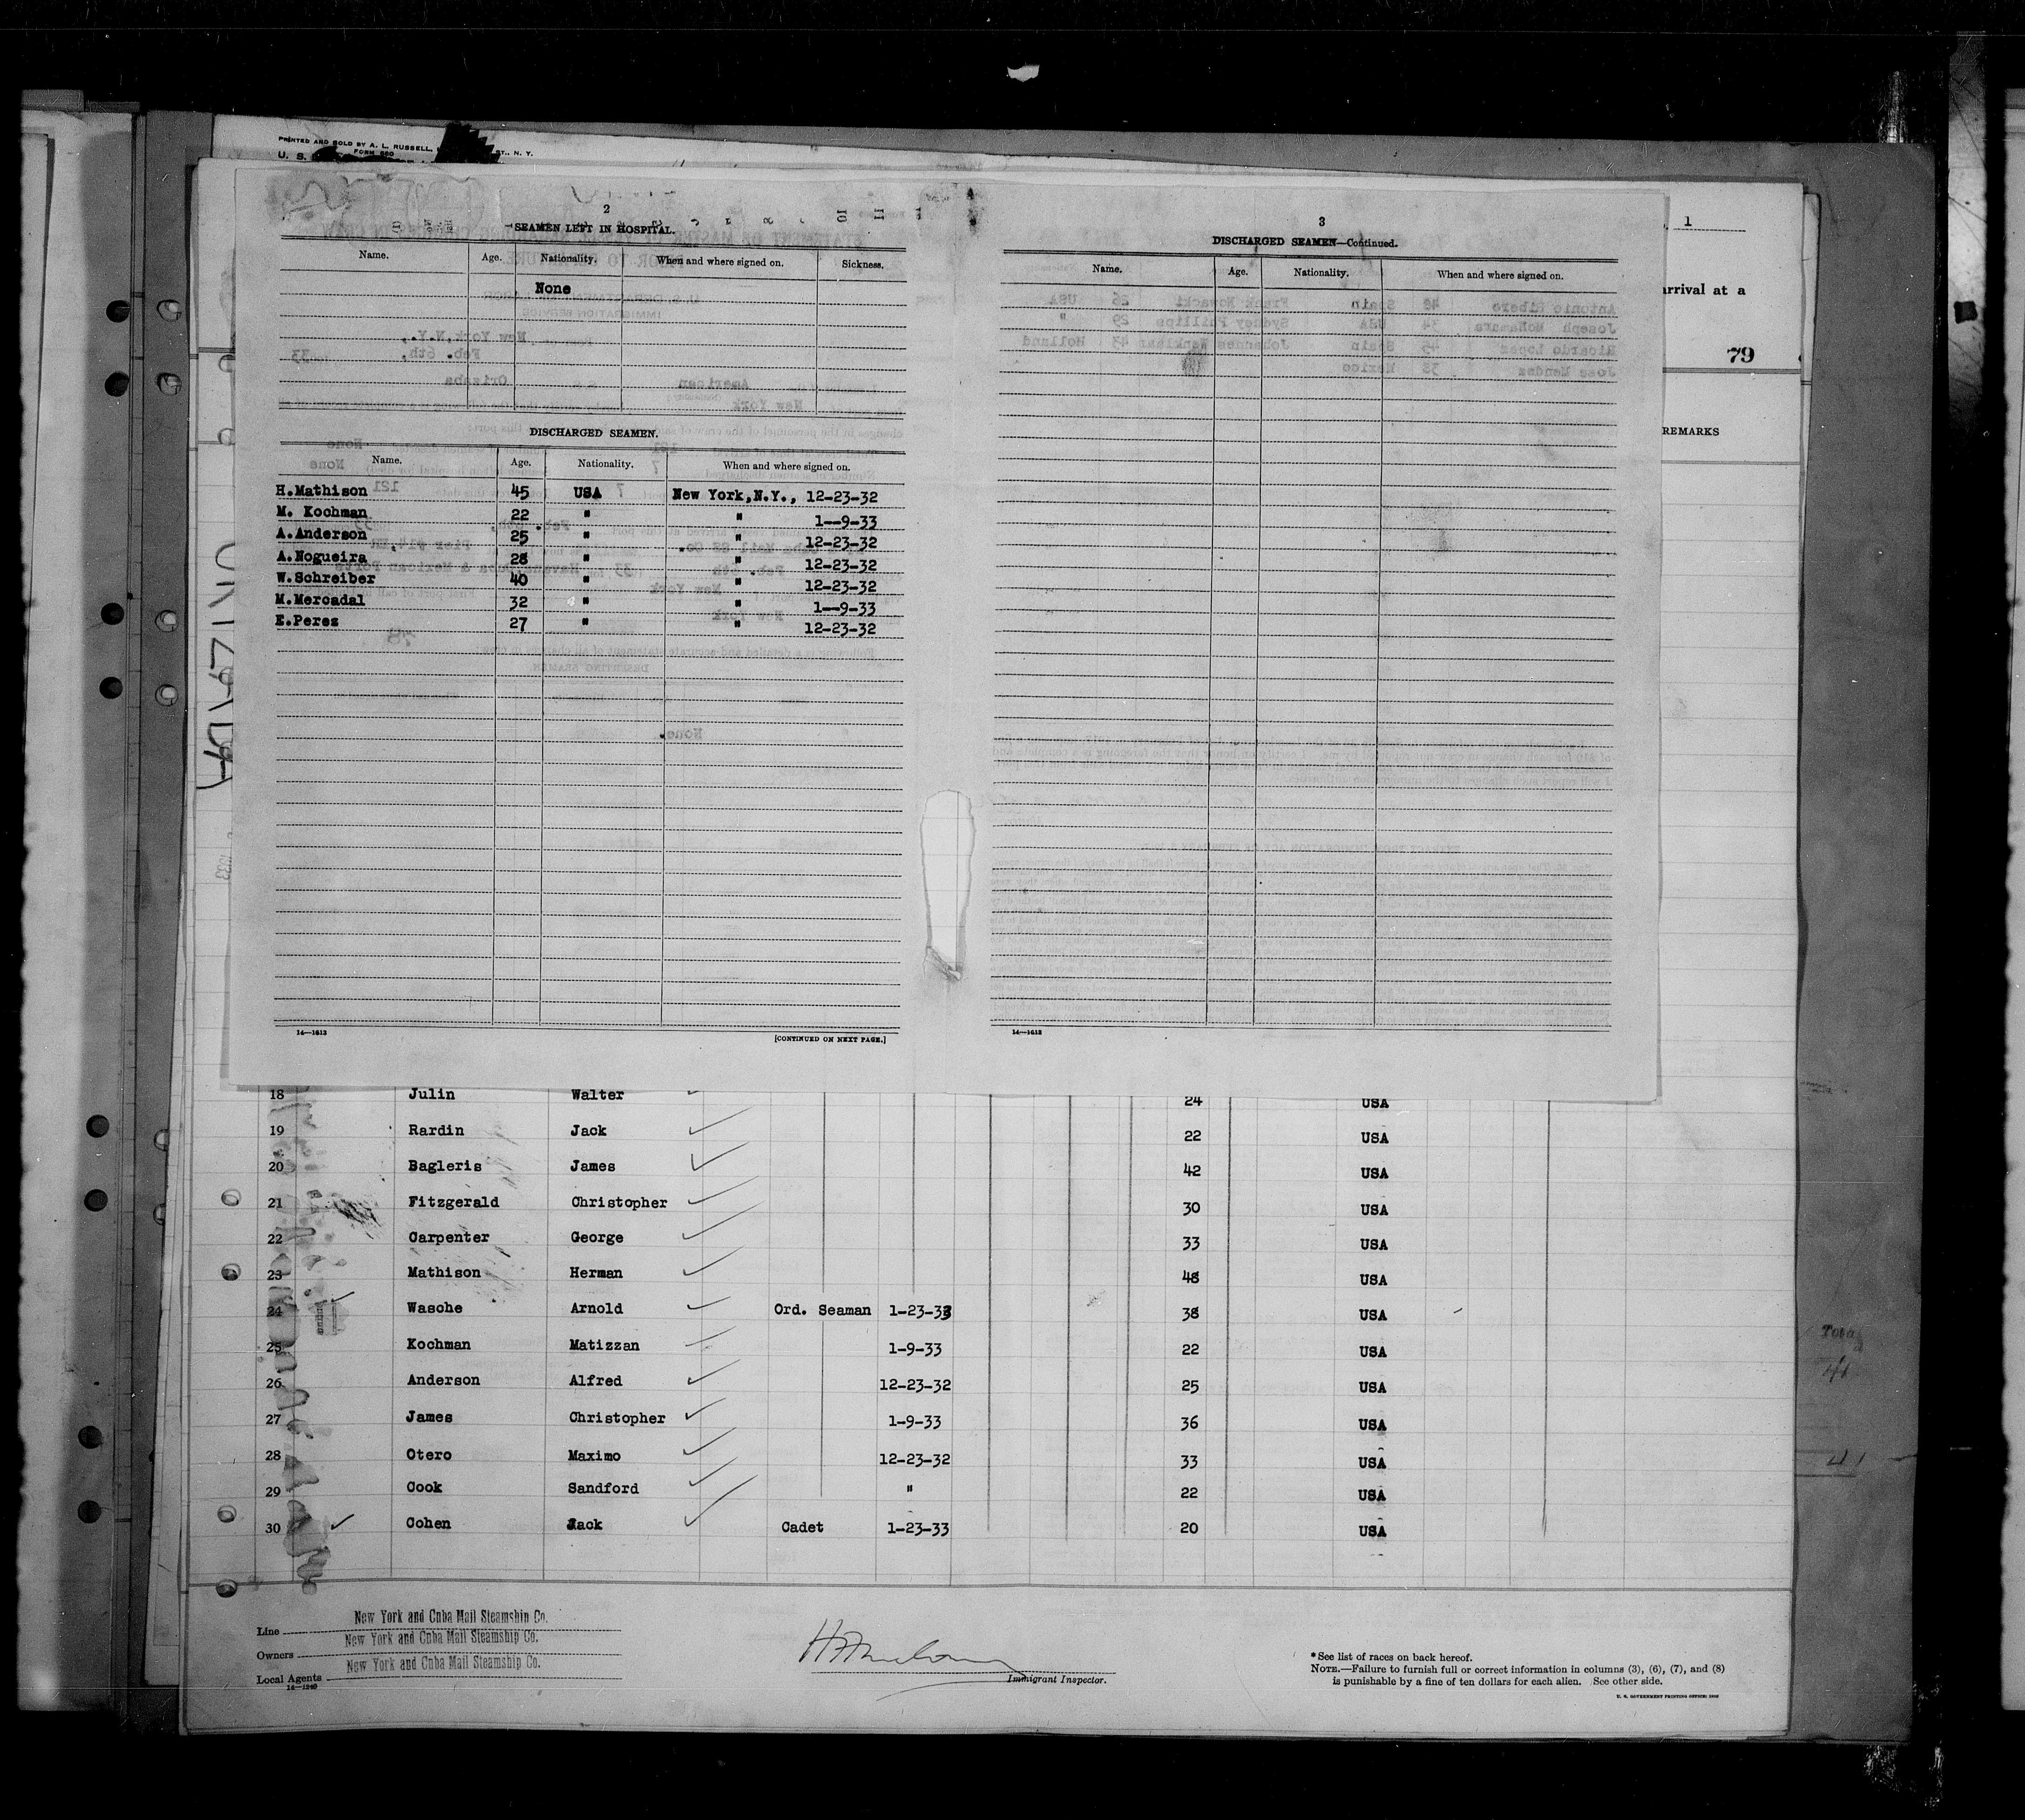 PRINTED AND SOLD BY A. L. RUSSELL, ST., N. Y.
FORM 680
U. S.
2
SEAMEN LEFT IN HOSPITAL.
Name. Age. Nationality. When and where signed on. Sickness.
None
DISCHARGED SEAMEN.
Name. Age. Nationality. When and where signed on.
H.Mathison 45 USA New York,N.Y., 12-23-32
M. Kochman 22 " " 1--9-33
A.Anderson 25 " " 12-23-32
A.Nogueira 28 " " 12-23-32
W.Schreiber 40 " " 12-23-32
M.Mercadal 32 " " 1--9-33
E.Perez 27 " " 12-23-32
14—1613
[CONTINUED ON NEXT PAGE.]
3
DISCHARGED SEAMEN—Continued.
Name. Age. Nationality. When and where signed on.
14—1613
1
arrival at a
79
REMARKS
18 Julin Walter 24 USA
19 Rardin Jack 22 USA
20 Bagleris James 42 USA
21 Fitzgerald Christopher 30 USA
22 Carpenter George 33 USA
23 Mathison Herman 48 USA
24 Wasche Arnold Ord. Seaman 1-23-33 38 USA
25 Kochman Matizzan 1-9-33 22 USA
26 Anderson Alfred 12-23-32 25 USA
27 James Christopher 1-9-33 36 USA
28 Otero Maximo 12-23-32 33 USA
29 Cook Sandford " 22 USA
30 Cohen Jack Cadet 1-23-33 20 USA
Total
41
Line New York and Cuba Mail Steamship Co.
Owners New York and Cuba Mail Steamship Co.
Local Agents New York and Cuba Mail Steamship Co.
14—1240
Immigrant Inspector.
*See list of races on back hereof.
NOTE.—Failure to furnish full or correct information in columns (3), (6), (7), and (8)
is punishable by a fine of ten dollars for each alien. See other side.
U. S. GOVERNMENT PRINTING OFFICE: